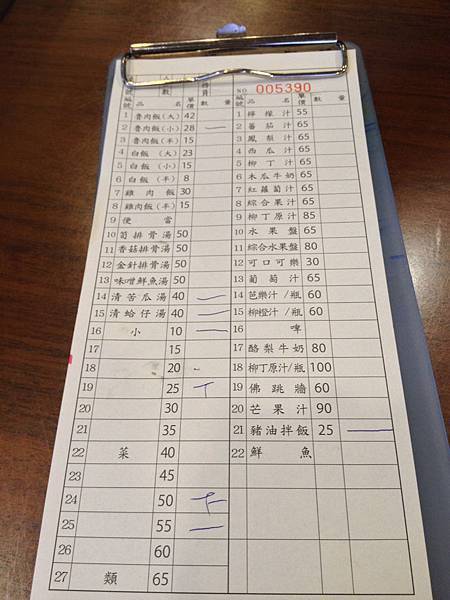 人數 待員
NO 005390
編號 品名 單價 數量
編號 品名 單價 數量
1 魯肉飯(大) 42
2 魯肉飯(小) 28 一
3 魯肉飯(半) 15
4 白飯(大) 23
5 白飯(小) 15
6 白飯(半) 8
7 雞肉飯 30
8 雞肉飯(半) 15
9 便當
10 筍排骨湯 50
11 香菇排骨湯 50
12 金針排骨湯 50
13 味噌鮮魚湯 50
14 清苦瓜湯 40 一
15 清蛤仔湯 40 一
16 小 10 一
17 15
18 20
19 25 丅
20 30
21 35
22 菜 40
23 45
24 50 下
25 55 一
26 60
27 類 65
1 檸檬汁 55
2 蕃茄汁 65
3 鳳梨汁 65
4 西瓜汁 65
5 柳丁汁 65
6 木瓜牛奶 65
7 紅蘿蔔汁 65
8 綜合果汁 65
9 柳丁原汁 85
10 水果盤 65
11 綜合水果盤 80
12 可口可樂 30
13 葡萄汁 65
14 芭樂汁/瓶 60
15 柳橙汁/瓶 60
16 啤
17 酪梨牛奶 80
18 柳丁原汁/瓶 100
19 佛跳牆 60
20 芒果汁 90
21 豬油拌飯 25 一
22 鮮魚